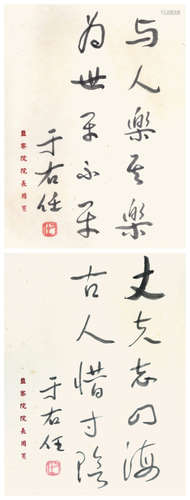 与人樂其樂
为世平不平
于右任
監察院院長用箋
丈夫志四海
古人惜寸陰
于右任
監察院院長用箋